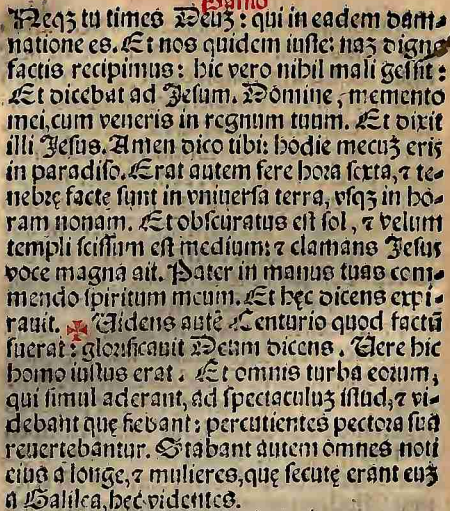 Neqꝫ tu times Deuꝫ: qui in eadem dam-
natione es. Et nos quidem iuste: naꝫ digna
factis recipimus: hic vero nihil mali gessit:
Et dicebat ad Jesum. Domine, memento
mei, cum veneris in regnum tuum. Et dixit
illi Jesus. Amen dico tibi: hodie mecuꝫ eris
in paradiso. Erat autem fere hora sexta, ⁊ te-
nebrę factę sunt in vniuersa terra, vsqꝫ in ho-
ram nonam. Et obscuratus est sol, ⁊ velum
templi scissum est medium: ⁊ clamans Jesus
voce magna ait. Pater in manus tuas com-
mendo spiritum meum. Et hęc dicens expi-
rauit. ✠ Uidens autē Centurio quod factū
fuerat: glorificauit Deum dicens. Uere hic
homo iustus erat. Et omnis turba eorum,
qui simul aderant, ad spectaculuꝫ istud, ⁊ vi-
debant quę fiebant: percutientes pectora sua
reuertebantur. Stabant autem omnes noti
eius a longe, ⁊ mulieres, quę secutę erant euꝫ
a Galilea, hęc videntes.